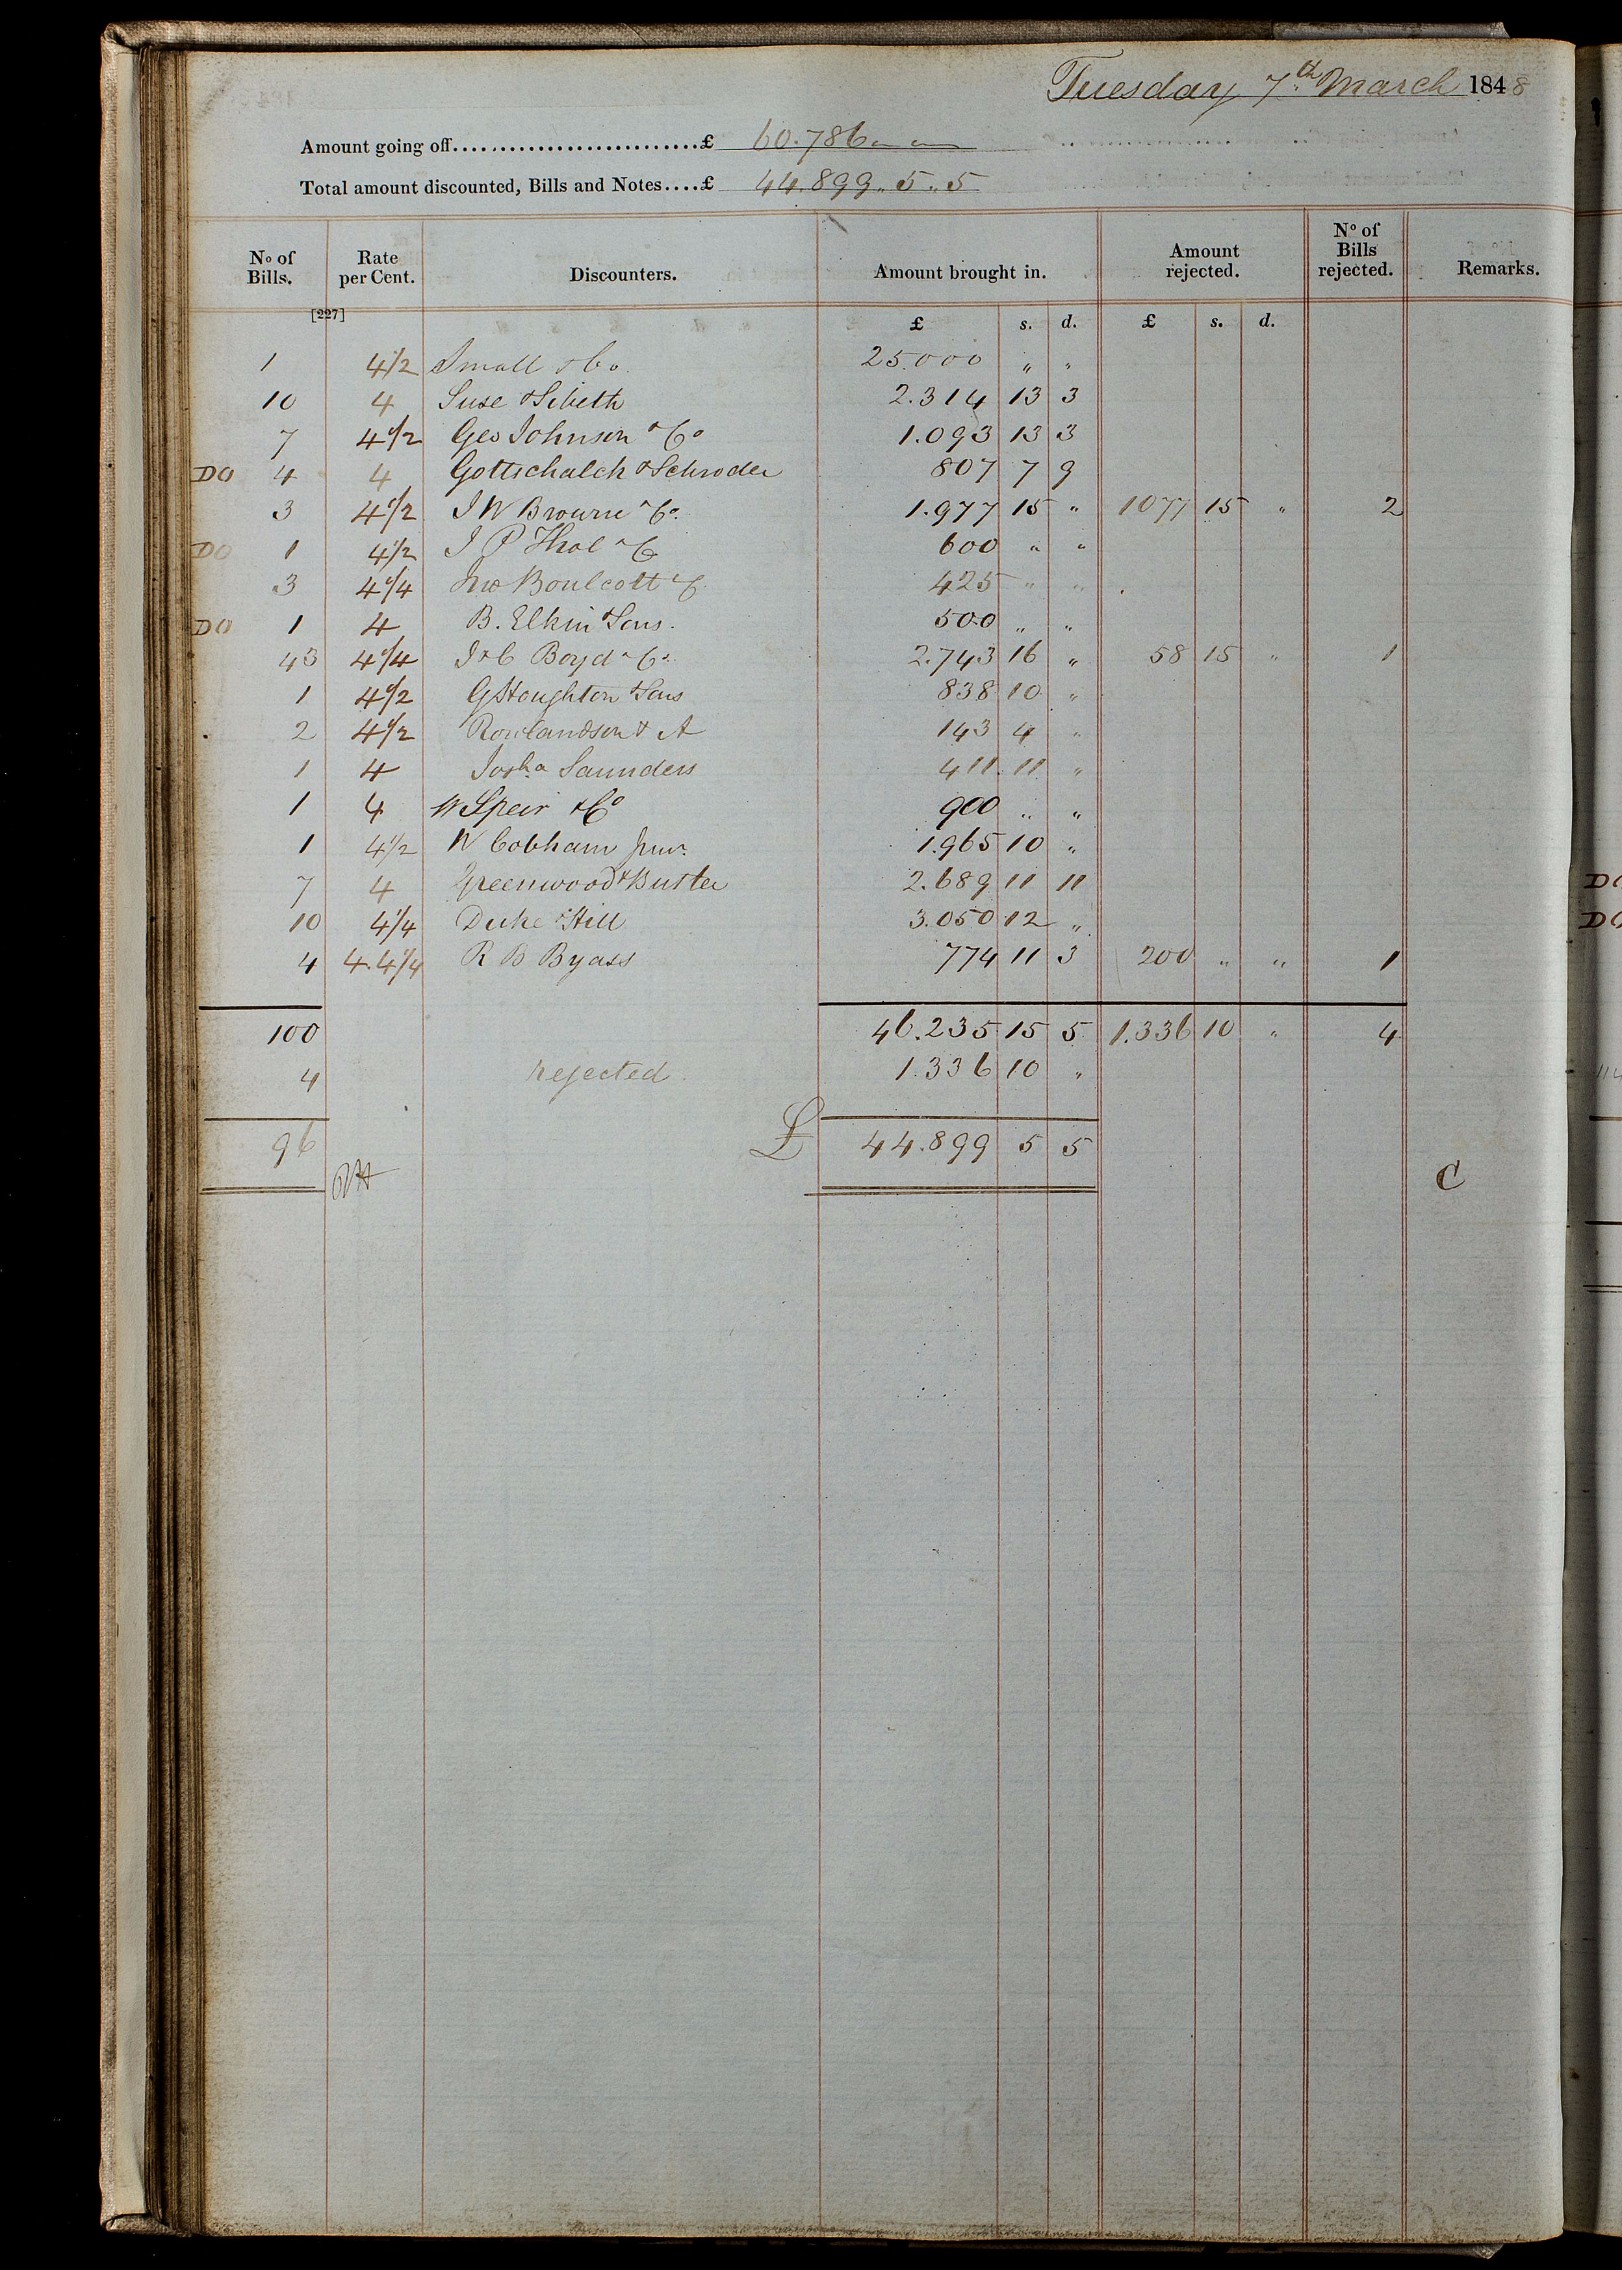 Tuesday 7th March 1848
Amount going off..........................£ 60.786 " "
Total amount discounted, Bills and Notes....£ 44.899 " 5 " 5
No of Bills. Rate per Cent. Discounters. Amount brought in. Amount rejected. No of Bills rejected. Remarks.
[227]
£ s. d. £ s. d.
1 4 1/2 Small & Co. 25.000 " "
10 4 Suse & Sibeth 2.314 13 3
7 4 1/2 Geo Johnson & Co 1.093 13 3
DO 4 4 Gottschalck & Schroder 807 7 9
3 4 1/2 J W Browne & Co. 1.977 15 " 1077 15 " 2
DO 1 4 1/2 J P Thol & C 600 " "
3 4 1/4 Jno Boulcott & C. 425 " "
DO 1 4 B. Elkin & Sons. 500 " "
43 4 1/4 J & C Boyd & Co. 2.743 16 " 58 15 " 1
1 4 1/2 G Houghton & Sons 838 10 "
2 4 1/2 Rowlandson & A 143 4 "
1 4 Josha Saunders 411 11 "
1 4 W Speir & Co 900 " "
1 4 1/2 W Cobham Junr. 1.965 10 "
7 4 Greenwood & Butler 2.689 11 11
10 4 1/4 Duke & Hill 3.050 12 "
4 4. 4 1/4 R B Byass 774 11 3 200 " " 1
100 46.235 15 5 1.336 10 " 4
4 rejected. 1.336 10 "
96 £ 44.899 5 5
C